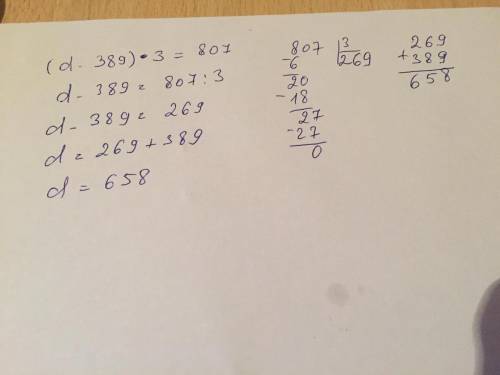 (d - 389) • 3 = 807
d - 389 = 807 : 3
d - 389 = 269
d = 269 + 389
d = 658
807 3
-6 269
20
-18
27
-27
0
269
+389
658